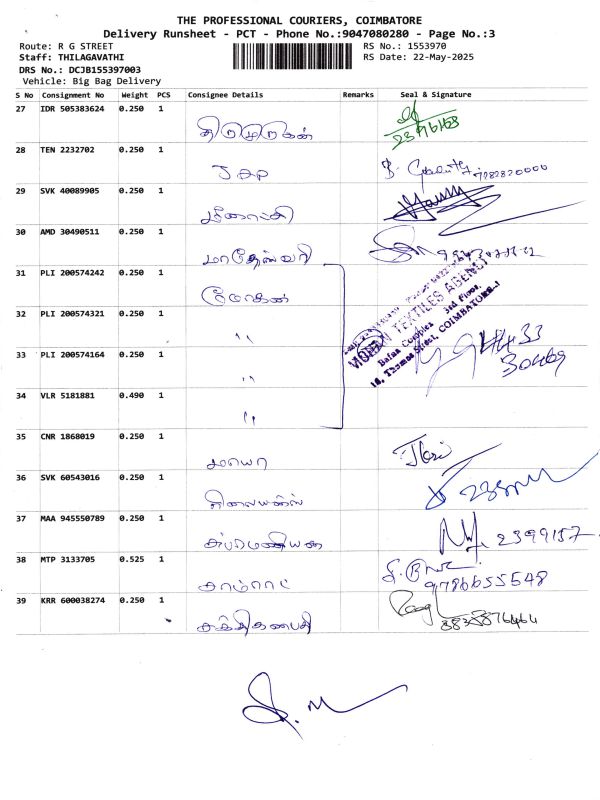 THE PROFESSIONAL COURIERS, COIMBATORE
Delivery Runsheet - PCT - Phone No.:9047080280 - Page No.:3
Route: R G STREET
RS No.: 1553970
Staff: THILAGAVATHI
RS Date: 22-May-2025
DRS No.: DCJB155397003
Vehicle: Big Bag Delivery
S No Consignment No Weight PCS Consignee Details Remarks Seal & Signature
27 IDR 505383624 0.250 1
திருமுருகன்
28 TEN 2232702 0.250 1
JAP
29 SVK 40089905 0.250 1
மீனாட்சி
30 AMD 30490511 0.250 1
மாதேஸ்வரி
31 PLI 200574242 0.250 1
மோகன்
32 PLI 200574321 0.250 1
"
33 PLI 200574164 0.250 1
"
34 VLR 5181881 0.490 1
"
MOHAN TEXTILES AGENCY
Bafna Complex 3rd Floor,
16, Thomas Street, COIMBATORE-1
94433
30469
35 CNR 1868019 0.250 1
மாயா
36 SVK 60543016 0.250 1
ரிலையன்ஸ்
37 MAA 945550789 0.250 1
சுப்ரமணியன்
2399157
38 MTP 3133705 0.525 1
சாம்ராட்
9786655548
39 KRR 600038274 0.250 1
சக்திகணபதி
8838876464